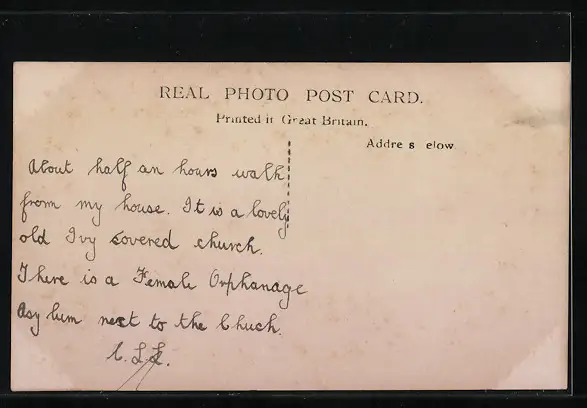 REAL PHOTO POST CARD.
Printed in Great Britain.
Addre s elow
About half an hours walk
from my house. It is a lovely
old Ivy covered church.
There is a Female Orphanage
Asylum next to the Chuch.